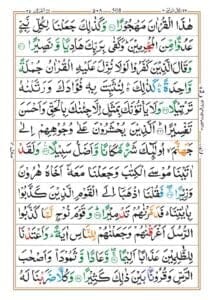 هٰذَا الْقُرْاٰنَ مَهْجُوْرًا ۝ وَكَذٰلِكَ جَعَلْنَا لِكُلِّ نَبِيٍّ
عَدُوًّا مِّنَ الْمُجْرِمِيْنَ ؕ وَكَفٰى بِرَبِّكَ هَادِيًا وَّنَصِيْرًا ۝
وَقَالَ الَّذِيْنَ كَفَرُوْا لَوْلَا نُزِّلَ عَلَيْهِ الْقُرْاٰنُ جُمْلَةً
وَّاحِدَةً ۛ كَذٰلِكَ ۛ لِنُثَبِّتَ بِهٖ فُؤَادَكَ وَرَتَّلْنٰهُ تَرْتِيْلًا ۝
وَلَا يَاْتُوْنَكَ بِمَثَلٍ اِلَّا جِئْنٰكَ بِالْحَقِّ وَاَحْسَنَ
تَفْسِيْرًا ۝ اَلَّذِيْنَ يُحْشَرُوْنَ عَلٰى وُجُوْهِهِمْ اِلٰى
جَهَنَّمَ ۙ اُولٰٓئِكَ شَرٌّ مَّكَانًا وَّاَضَلُّ سَبِيْلًا ۝ وَلَقَدْ
اٰتَيْنَا مُوْسَى الْكِتٰبَ وَجَعَلْنَا مَعَهٗٓ اَخَاهُ هٰرُوْنَ
وَزِيْرًا ۝ فَقُلْنَا اذْهَبَآ اِلَى الْقَوْمِ الَّذِيْنَ كَذَّبُوْا
بِاٰيٰتِنَا ؕ فَدَمَّرْنٰهُمْ تَدْمِيْرًا ۝ وَقَوْمَ نُوْحٍ لَّمَّا كَذَّبُوا
الرُّسُلَ اَغْرَقْنٰهُمْ وَجَعَلْنٰهُمْ لِلنَّاسِ اٰيَةً ؕ وَاَعْتَدْنَا
لِلظّٰلِمِيْنَ عَذَابًا اَلِيْمًا ۝ وَّعَادًا وَّثَمُوْدَا۟ وَاَصْحٰبَ
الرَّسِّ وَقُرُوْنًۢا بَيْنَ ذٰلِكَ كَثِيْرًا ۝ وَكُلًّا ضَرَبْنَا لَهُ